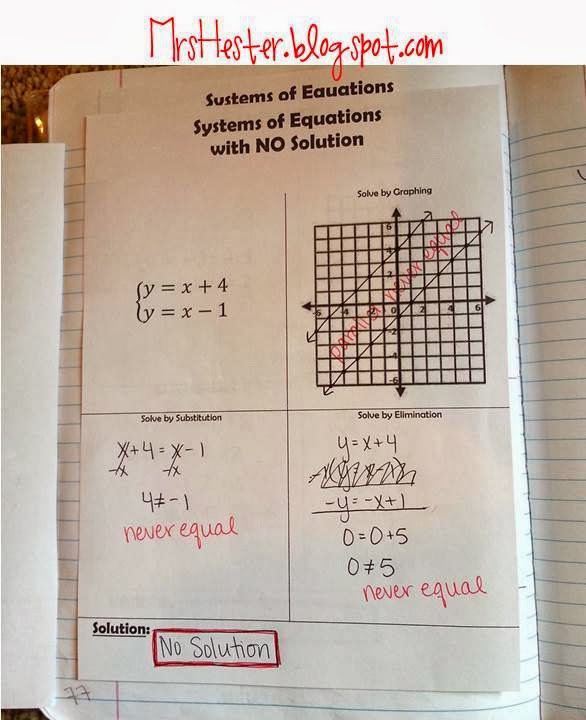 MrsHester.blogspot.com
Systems of Equations
Systems of Equations
with NO Solution
Solve by Graphing
6
4
2
-6 -4 -2 0 2 4 6
-2
-4
-6
parallel, never equal
{y = x + 4
y = x − 1
Solve by Substitution
x+4=x-1
-x -x
4≠-1
never equal
Solve by Elimination
y=x+4
-y=-x+1
0=0+5
0≠5
never equal
Solution:
No Solution
77